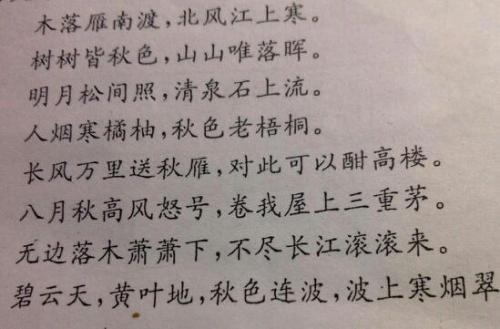 木落雁南渡,北风江上寒。
树树皆秋色,山山唯落晖。
明月松间照,清泉石上流。
人烟寒橘柚,秋色老梧桐。
长风万里送秋雁,对此可以酣高楼。
八月秋高风怒号,卷我屋上三重茅。
无边落木萧萧下,不尽长江滚滚来。
碧云天,黄叶地,秋色连波,波上寒烟翠